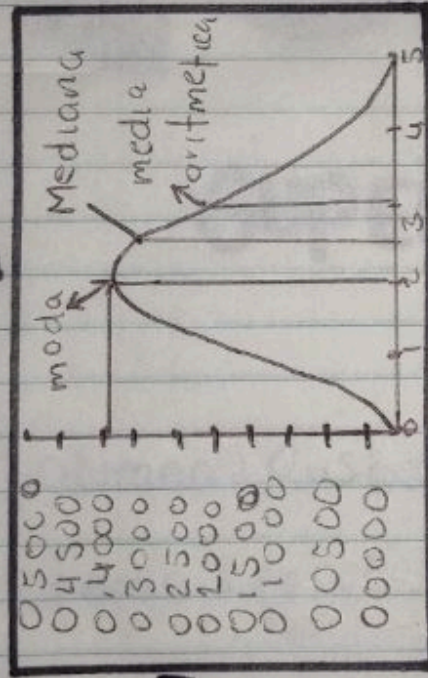 Mediana
moda
media
aritmetica
0 5000
0 4500
0,4000
0 3000
0 2500
0 2000
0,1500
0 1000
0 0500
0 0000
0 1 2 3 4 5